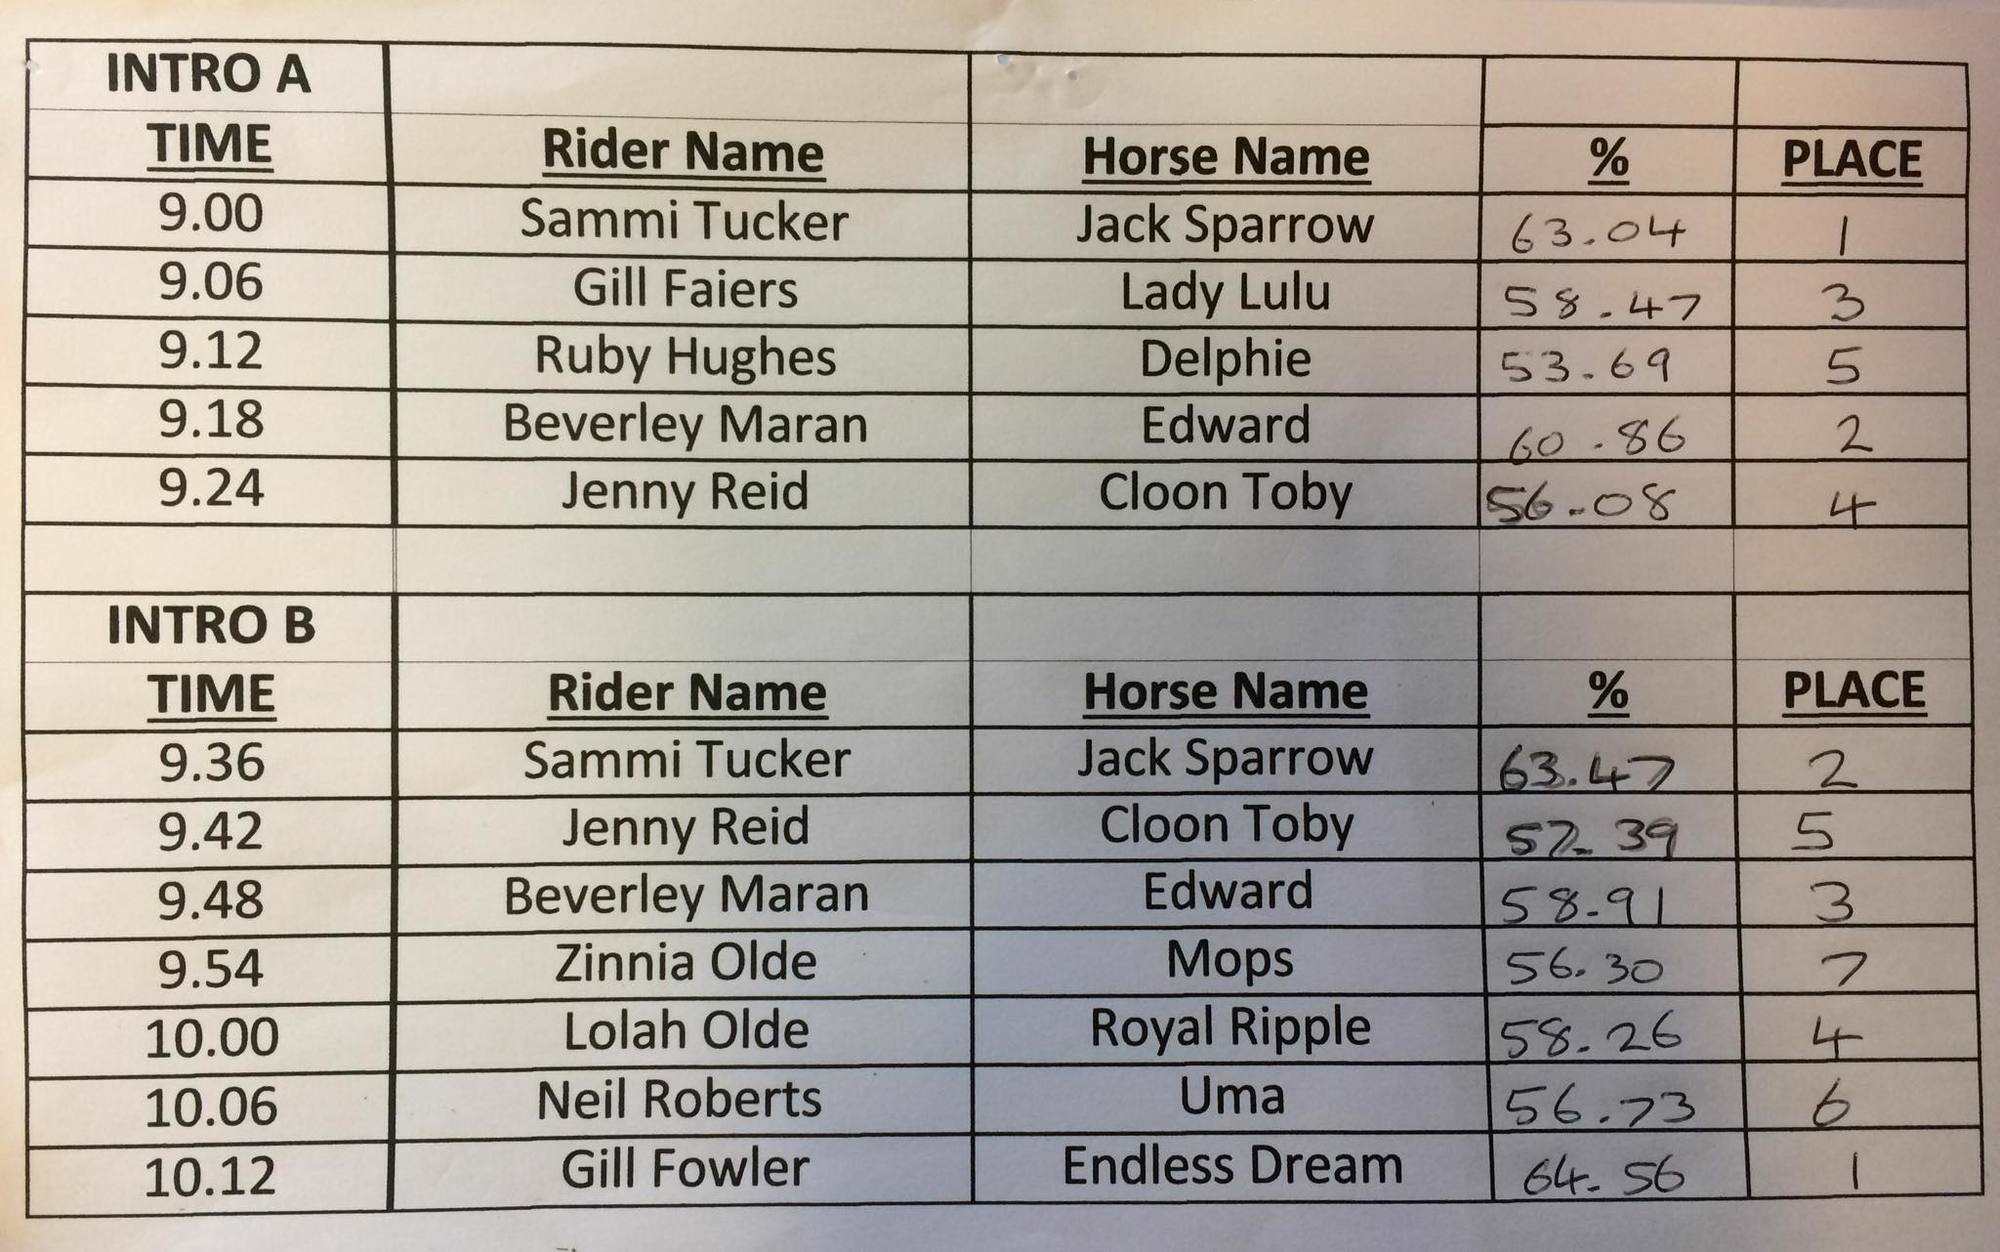 INTRO A
TIME Rider Name Horse Name % PLACE
9.00 Sammi Tucker Jack Sparrow 63.04 1
9.06 Gill Faiers Lady Lulu 58.47 3
9.12 Ruby Hughes Delphie 53.69 5
9.18 Beverley Maran Edward 60.86 2
9.24 Jenny Reid Cloon Toby 56.08 4
INTRO B
TIME Rider Name Horse Name % PLACE
9.36 Sammi Tucker Jack Sparrow 63.47 2
9.42 Jenny Reid Cloon Toby 57.39 5
9.48 Beverley Maran Edward 58.91 3
9.54 Zinnia Olde Mops 56.30 7
10.00 Lolah Olde Royal Ripple 58.26 4
10.06 Neil Roberts Uma 56.73 6
10.12 Gill Fowler Endless Dream 64.56 1